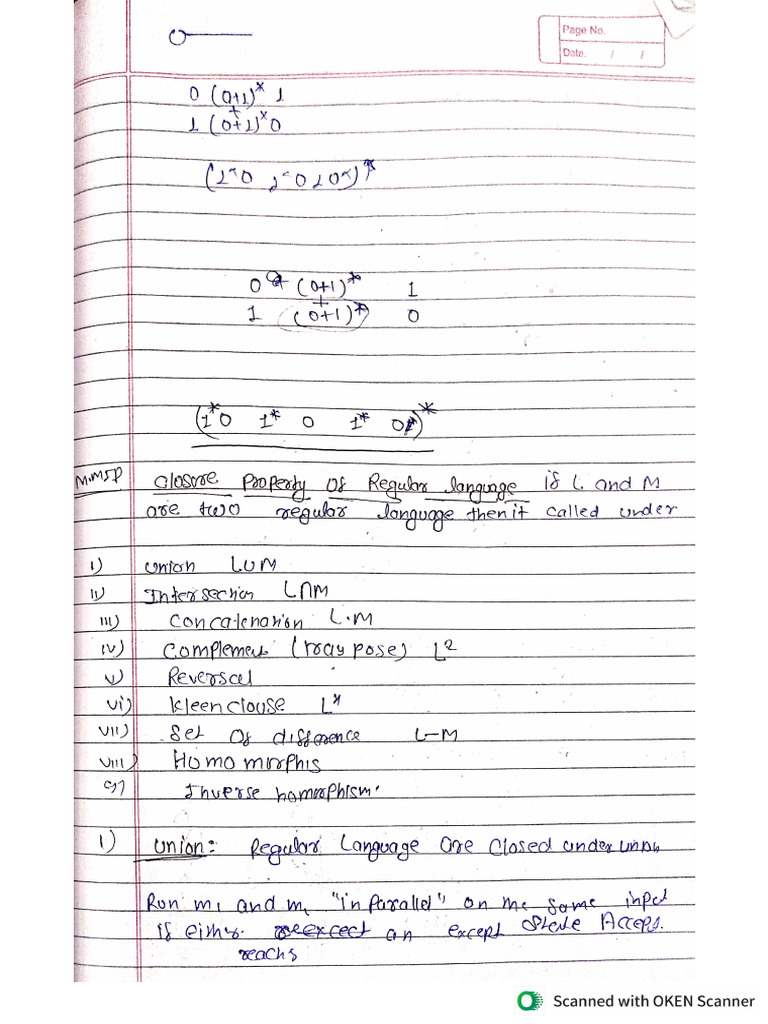 Page No.
Date. / /
0 (0+1)* 1
+
1 (0+1)* 0
0 (0+1)* 1
+
1 (0+1)* 0
(1*0 1* 0 1* 0)*
M.MSP Closure Property Of Regular language if L and M
are two regular language then it called under
i) Union L∪M
ii) Intersection L∩M
iii) Concatenation L.M
iv) Complement (traypose) L²
v) Reversal
vi) Kleen clouse L*
vii) Set Of difference L-M
viii) Homo mirphis
9) Inverse homrphism.
1) Union: Regular Language are Closed under
Run m1 and m2 "in Parallel" on me same input
if either an except State Accept.
reachs
Scanned with OKEN Scanner